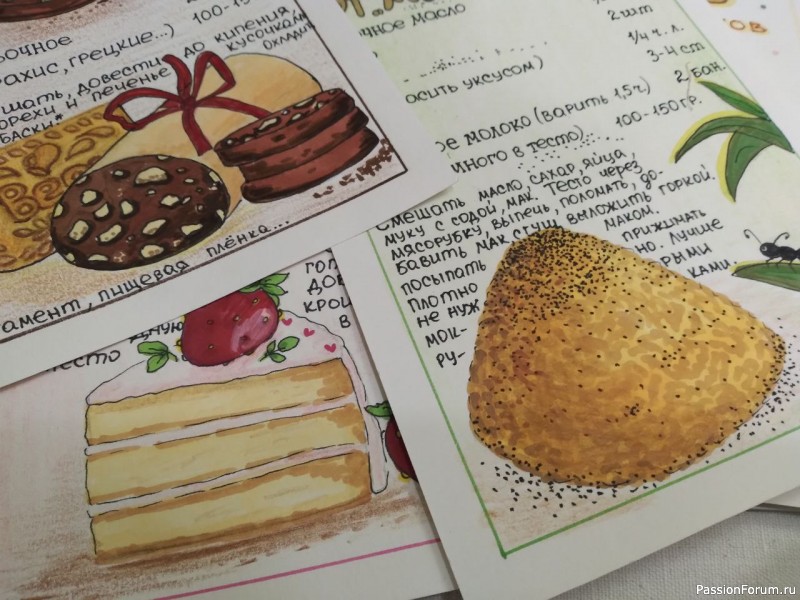 БОЧНОЕ
100-15
АХИС, ГРЕЦКИЕ...)
ШАТЬ, ДОВЕСТИ ДО КИПЕНИЯ,
ОРЕХИ И ПЕЧЕНЬЕ КУСОЧКАМИ
БАСКИ"
ГАМЕНТ, ПИЩЕВАЯ ПЛЁНКА...
ЧНОЕ МАСЛО
2 ШТ
1/4 Ч. Л.
АСИТЬ УКСУСОМ)
3-4 СТ
2 БАН.
ОЕ МОЛОКО (ВАРИТЬ 1,5 Ч)
100-150 ГР.
ИНОГО В ТЕСТО)
СМЕШАТЬ МАСЛО, САХАР, ЯЙЦА,
МУКУ С СОДОЙ, МАК. ТЕСТО ЧЕРЕЗ
МЯСОРУБКУ, ВЫПЕЧЬ, ПОЛОМАТЬ, ДО-
БАВИТЬ МАК, СГУЩ. ВЫЛОЖИТЬ ГОРКОЙ.
ПОСЫПАТЬ МАКОМ.
ПЛОТНО ПРИЖИМАТЬ
НЕ НУЖНО. ЛУЧШЕ
МОК-РЫМИ
РУ-КАМИ.
ОВ
ГОТ
ДОВ
КРОШ
В
ТЕСТО
PassionForum.ru